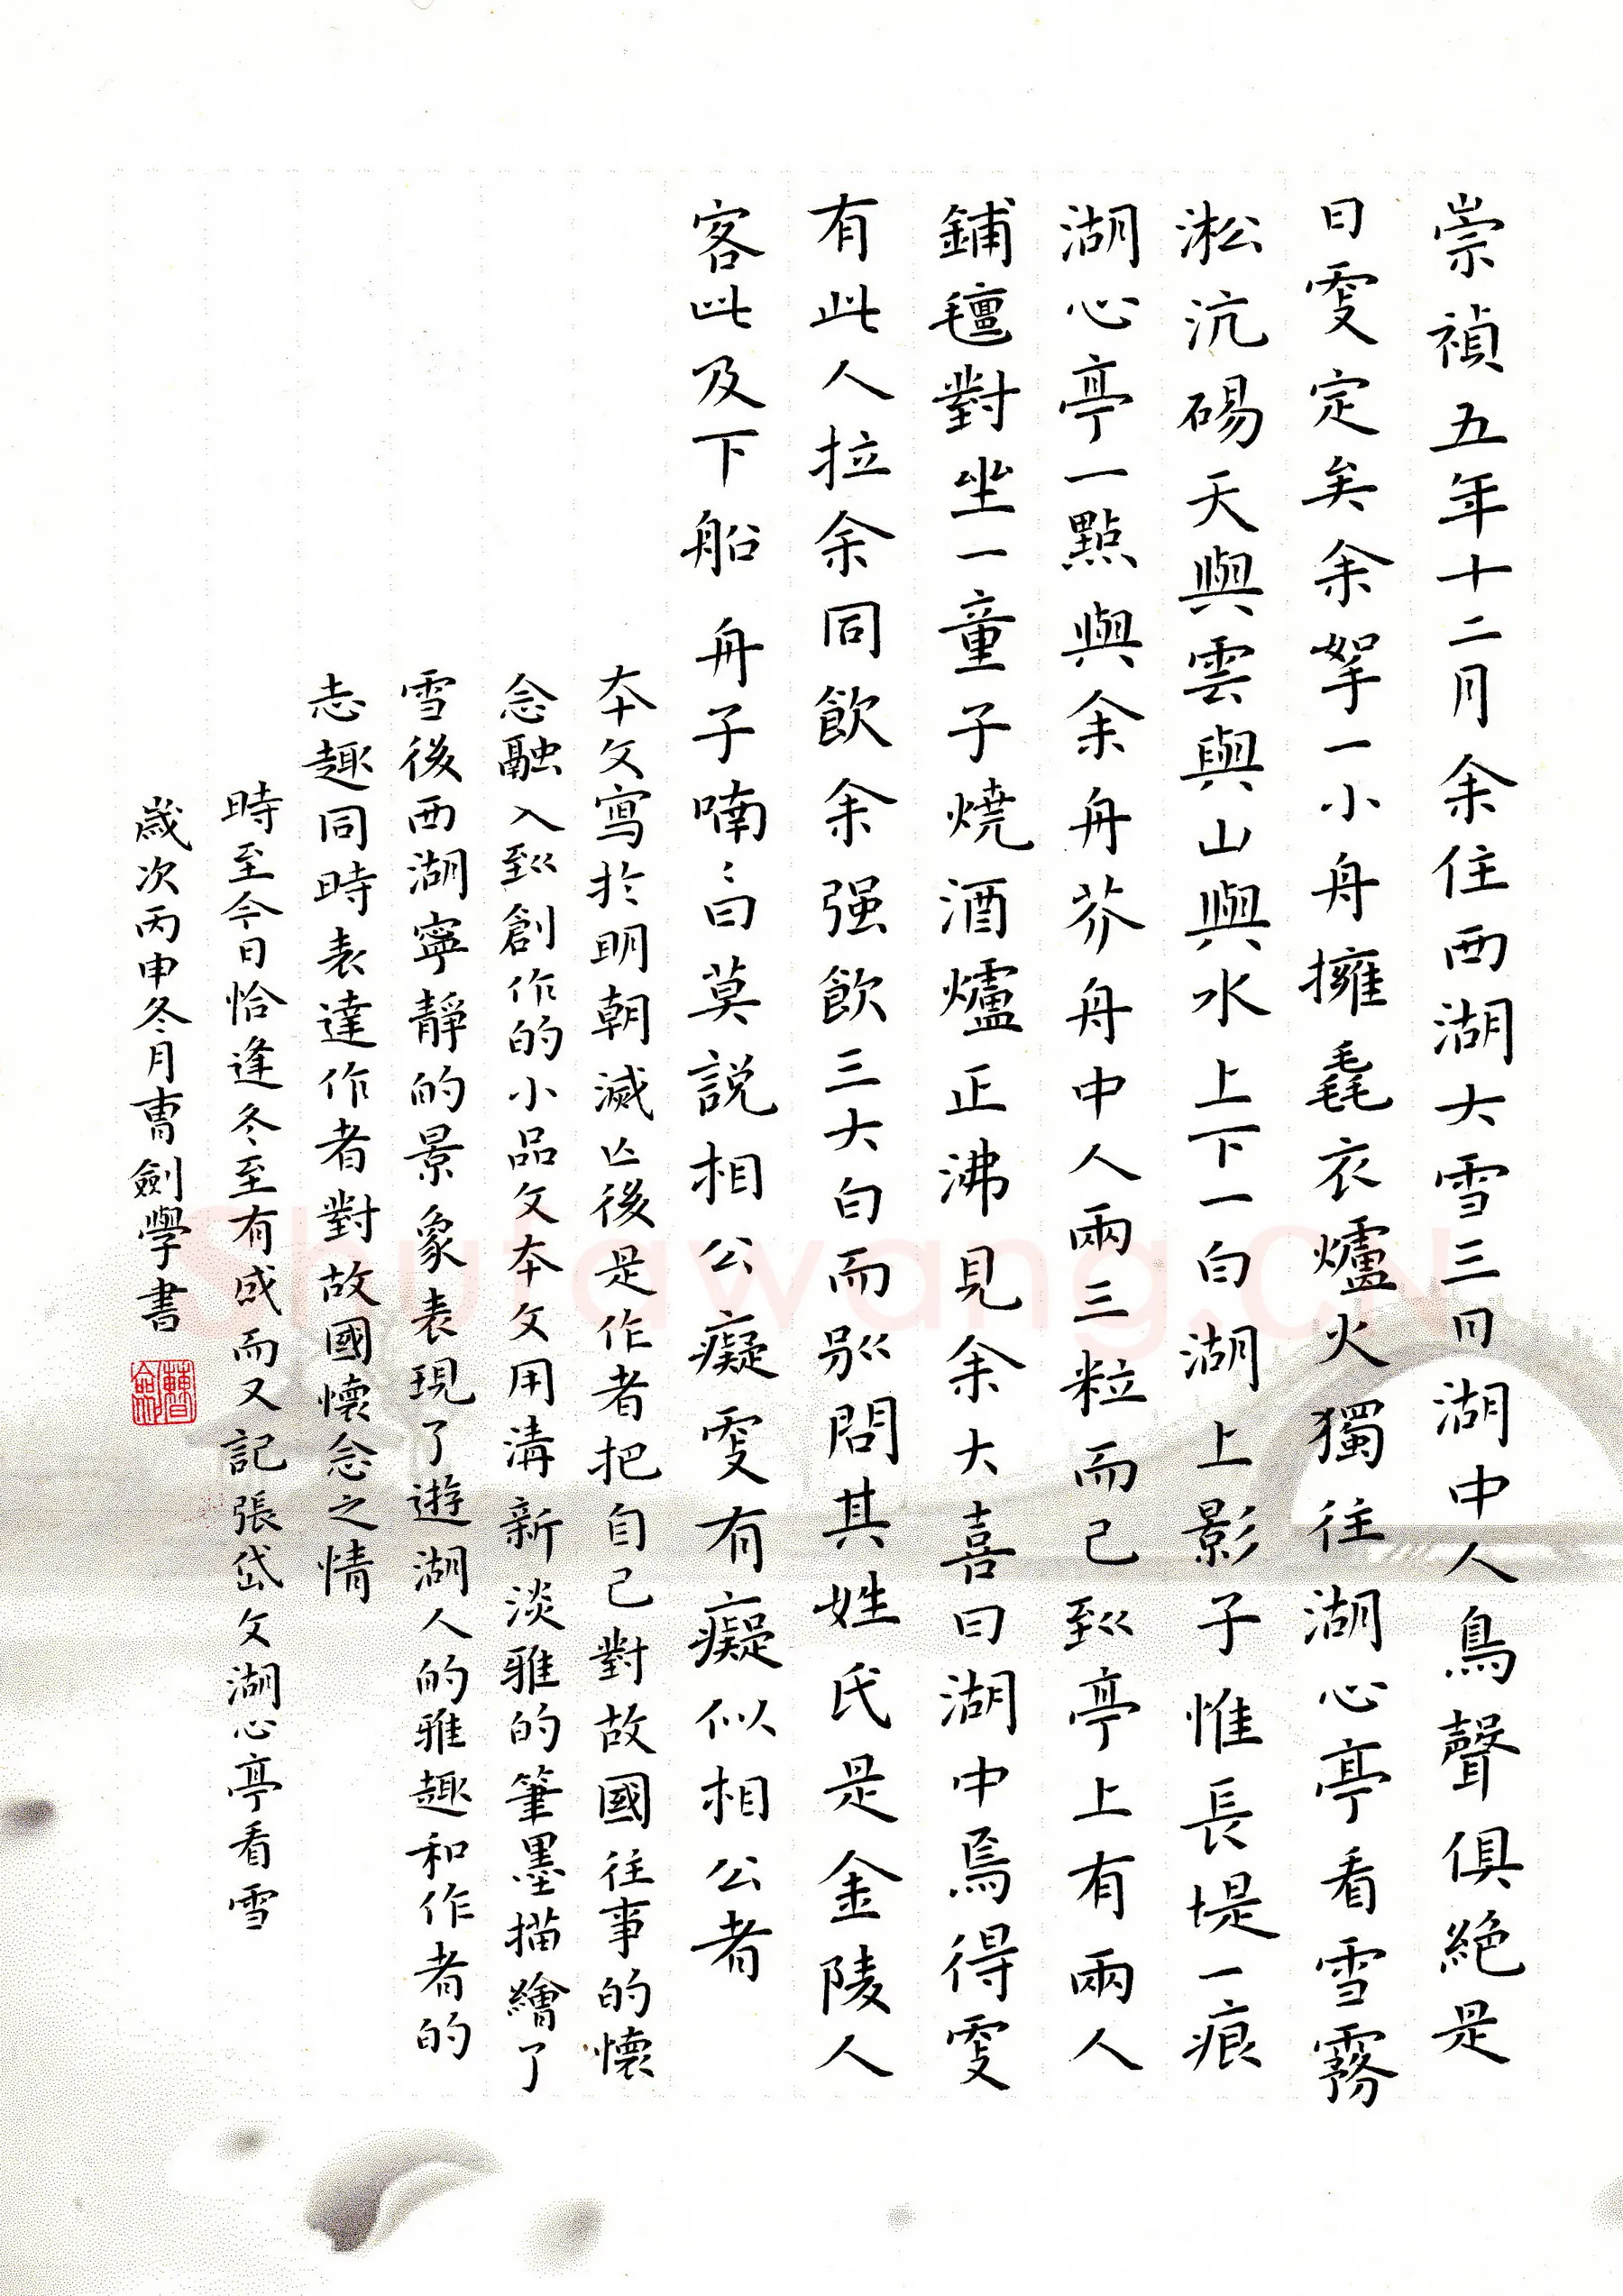 崇禎五年十二月余住西湖大雪三日湖中人鳥聲俱絶是
日更定矣余拏一小舟擁毳衣爐火獨往湖心亭看雪霧
淞沆碭天與雲與山與水上下一白湖上影子惟長堤一痕
湖心亭一點與余舟芥舟中人兩三粒而已到亭上有兩人
鋪氊對坐一童子燒酒爐正沸見余大喜曰湖中焉得更
有此人拉余同飲余强飲三大白而别問其姓氏是金陵人
客此及下船舟子喃〻曰莫説相公癡更有癡似相公者
本文寫於明朝滅亡後是作者把自己對故國往事的懷
念融入到創作的小品文本文用清新淡雅的筆墨描繪了
雪後西湖寧靜的景象表現了遊湖人的雅趣和作者的
志趣同時表達作者對故國懷念之情
時至今日恰逢冬至有感而又記張岱文湖心亭看雪
歲次丙申冬月曹劍學書
Shufawang.CN